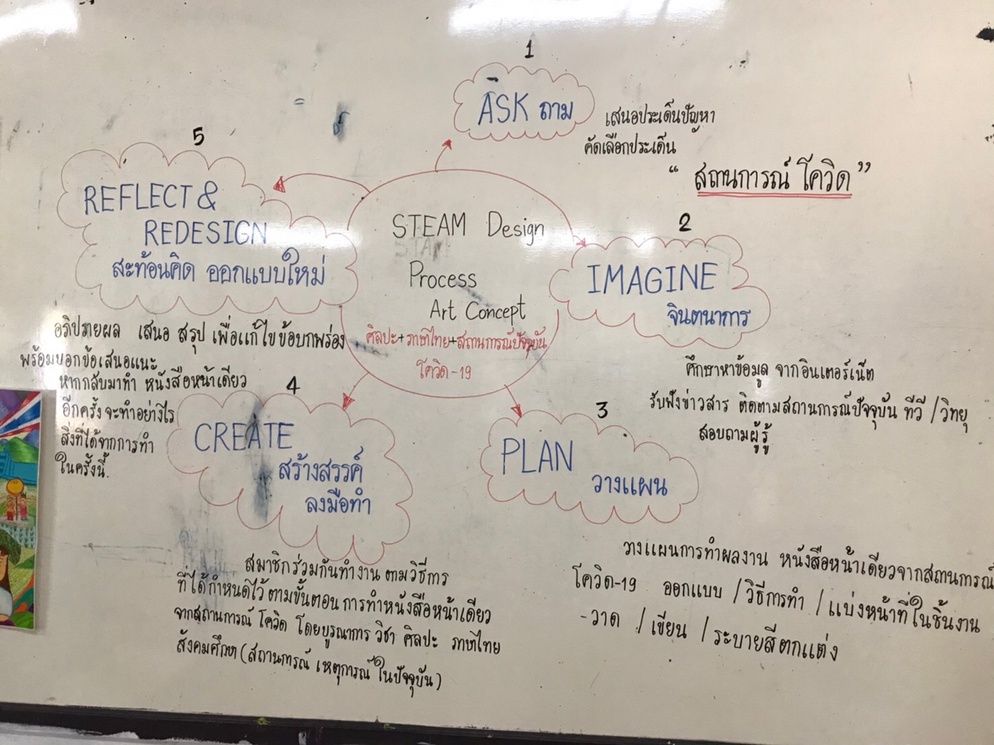 1
ASK ถาม
เสนอประเด็นปัญหา
คัดเลือกประเด็น
“ สถานการณ์ โควิด ”
STEAM Design
Process
Art Concept
ศิลปะ+ภาษาไทย+สถานการณ์ปัจจุบัน
โควิด-19
2
IMAGINE
จินตนาการ
ศึกษาหาข้อมูล จากอินเตอร์เน็ต
รับฟังข่าวสาร ติดตามสถานการณ์ปัจจุบัน ทีวี /วิทยุ
สอบถามผู้รู้
3
PLAN
วางแผน
วางแผนการทำผลงาน หนังสือหน้าเดียวจากสถานการณ์
โควิด-19 ออกแบบ /วิธีการทำ /แบ่งหน้าที่ในชิ้นงาน
-วาด /เขียน /ระบายสีตกแต่ง
4
CREATE
สร้างสรรค์
ลงมือทำ
สมาชิกร่วมกันทำงาน ตามวิธีการ
ที่ได้กำหนดไว้ ตามขั้นตอน การทำหนังสือหน้าเดียว
จากสถานการณ์ โควิด โดยบูรณาการ วิชา ศิลปะ ภาษาไทย
สังคมศึกษา (สถานการณ์ เหตุการณ์ ในปัจจุบัน)
5
REFLECT &
REDESIGN
สะท้อนคิด ออกแบบใหม่
อภิปรายผล เสนอ สรุป เพื่อแก้ไขข้อบกพร่อง
พร้อมบอกข้อเสนอแนะ
หากกลับมาทำ หนังสือหน้าเดียว
อีกครั้ง จะทำอย่างไร
สิ่งที่ได้จากการทำ
ในครั้งนี้.